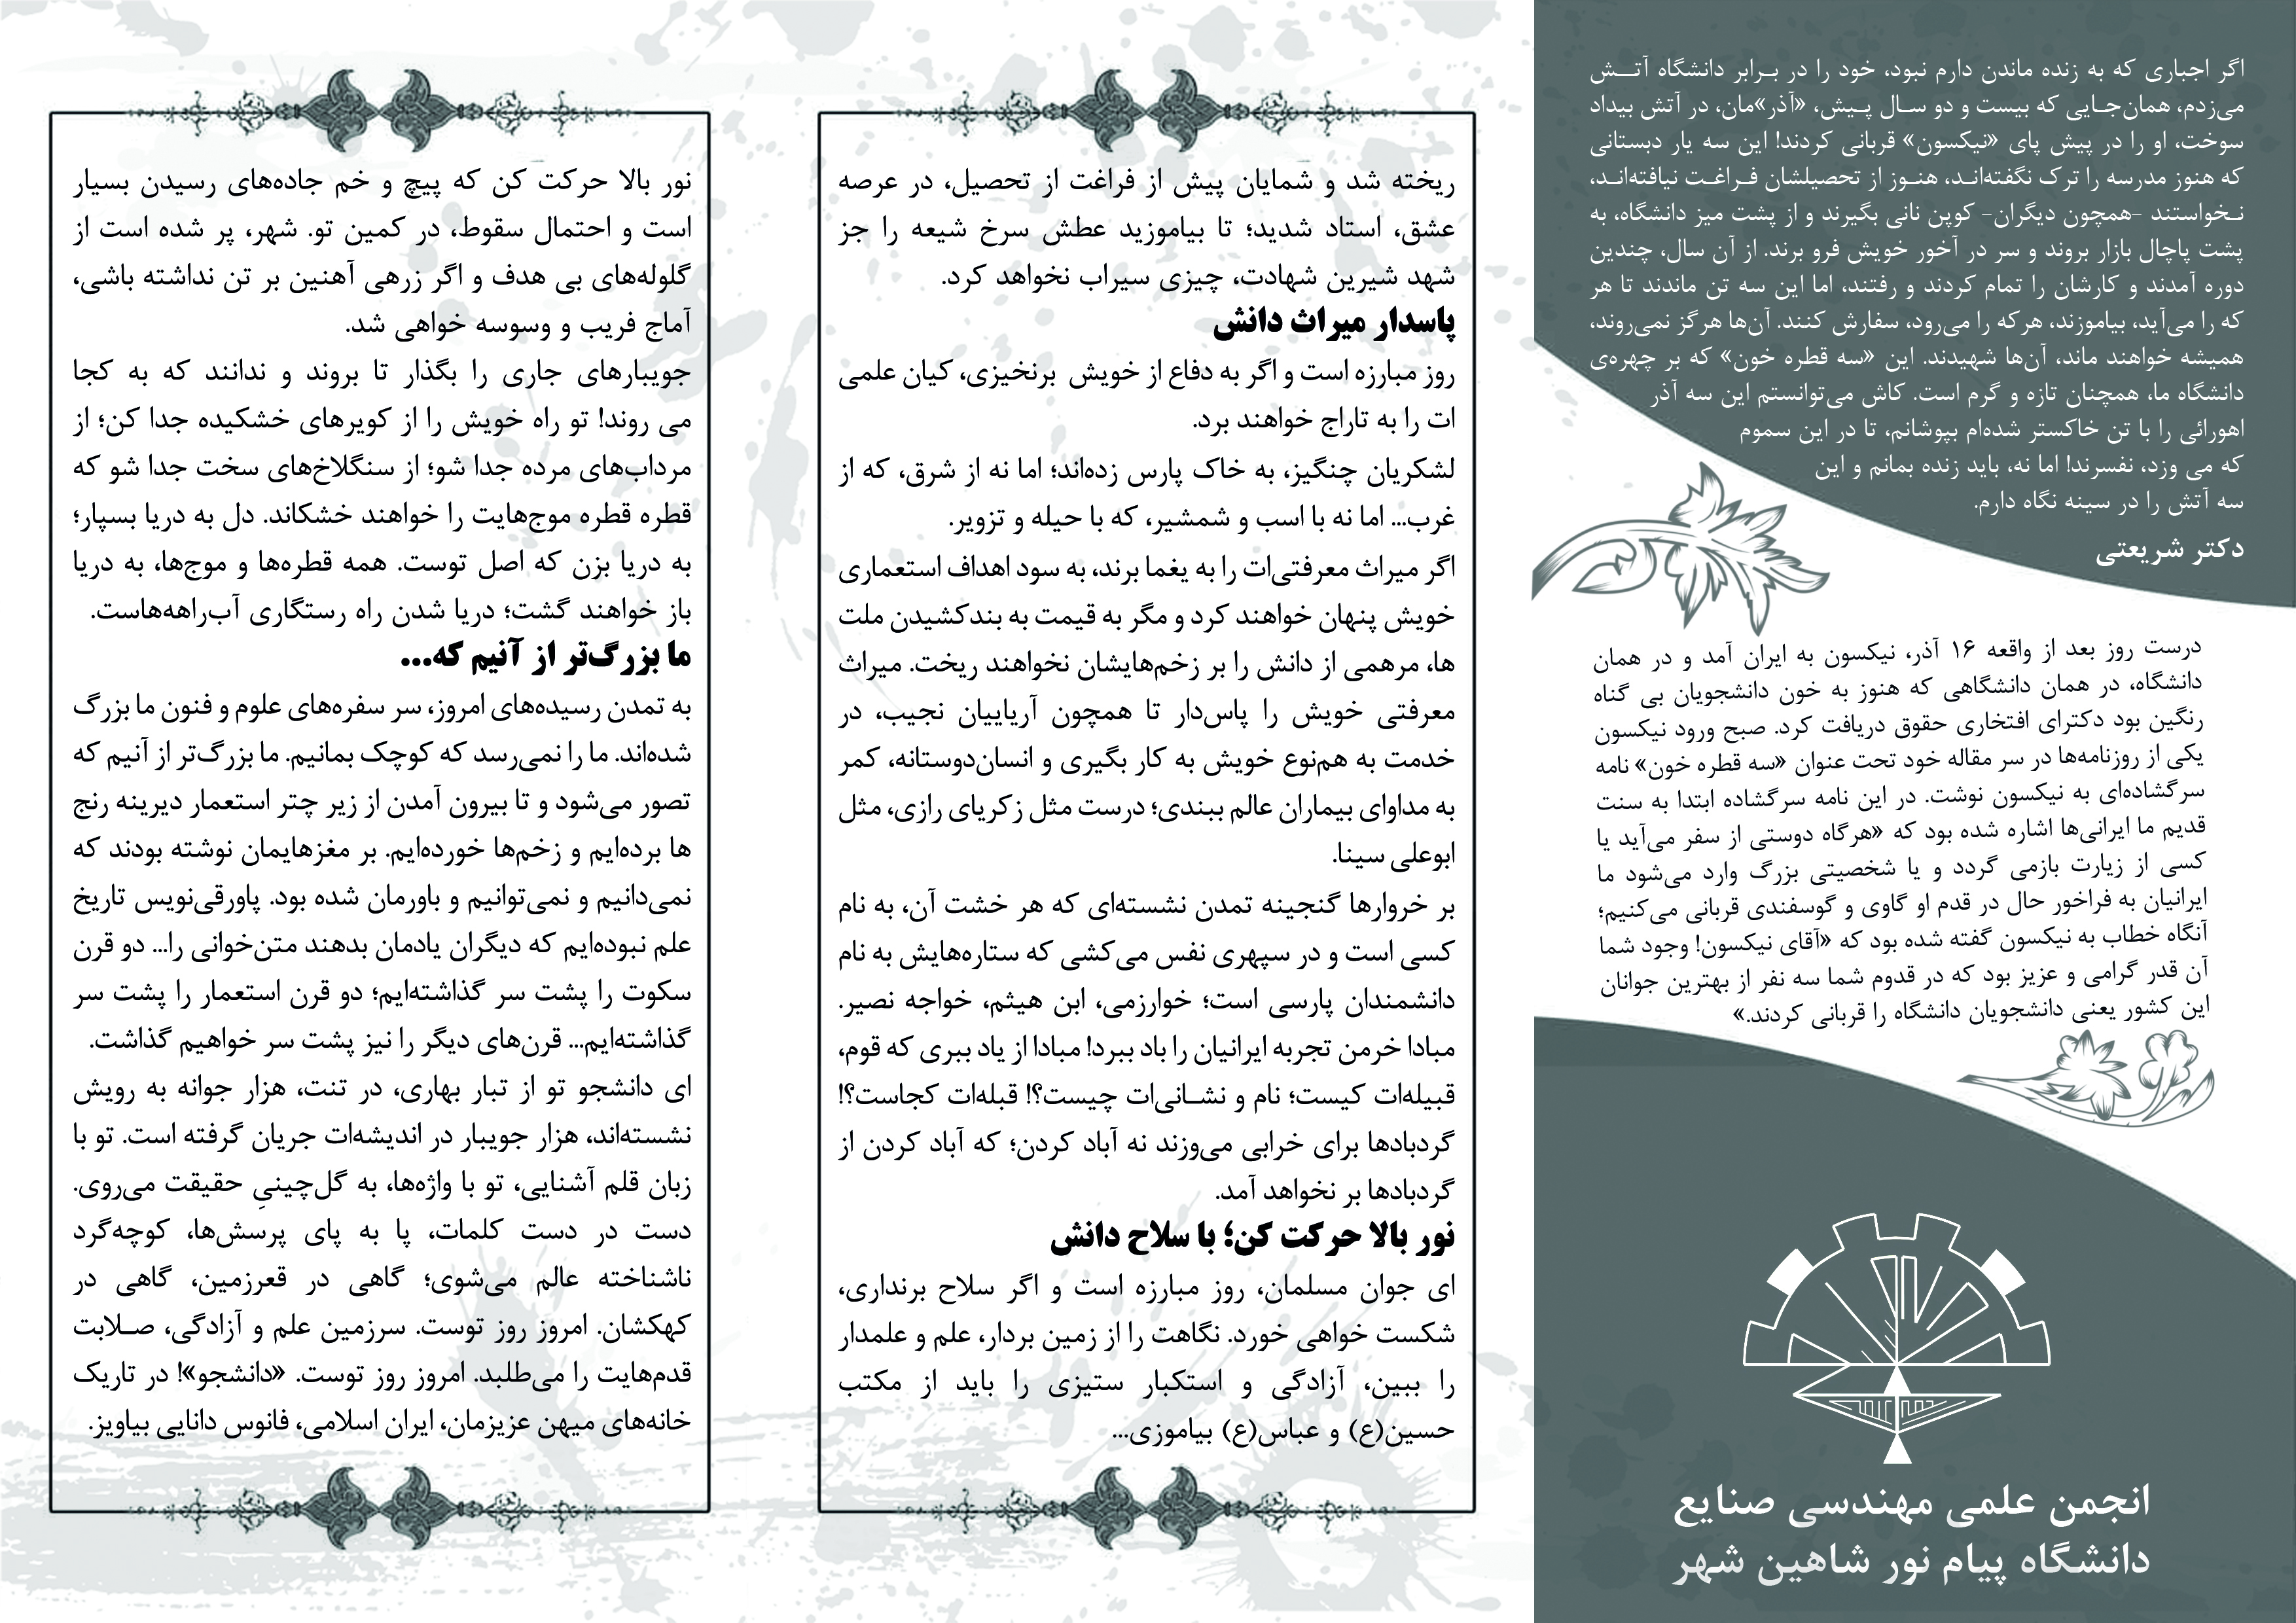 اگر اجباری که به زنده ماندن دارم نبود، خود را در بـرابر دانشگاه آتــش
می‌زدم، همان‌جـایی که بیست و دو سـال پـیش، «آذر»مان، در آتش بیداد
سوخت، او را در پیش پای «نیکسون» قربانی کردند! این سه یار دبستانی
که هنوز مدرسه را ترک نگفته‌انـد، هنـوز از تحصیلشان فـراغـت نیافته‌انـد،
نـخواستند -همچون دیگران- کوپن نانی بگیرند و از پشت میز دانشگاه، به
پشت پاچال بازار بروند و سر در آخور خویش فرو برند. از آن سال، چندین
دوره آمدند و کارشان را تمام کردند و رفتند، اما این سه تن ماندند تا هر
که را می‌آید، بیاموزند، هرکه را می‌رود، سفارش کنند. آن‌ها هرگز نمی‌روند،
همیشه خواهند ماند، آن‌ها شهیدند. این «سه قطره خون» که بر چهره‌ی
دانشگاه ما، همچنان تازه و گرم است. کاش می‌توانستم این سه آذر
اهورائی را با تن خاکستر شده‌ام بپوشانم، تا در این سموم
که می وزد، نفسرند! اما نه، باید زنده بمانم و این
سه آتش را در سینه نگاه دارم.
دکتر شریعتی
درست روز بعد از واقعه ۱۶ آذر، نیکسون به ایران آمد و در همان
دانشگاه، در همان دانشگاهی که هنوز به خون دانشجویان بی گناه
رنگین بود دکترای افتخاری حقوق دریافت کرد. صبح ورود نیکسون
یکی از روزنامه‌ها در سر مقاله خود تحت عنوان «سه قطره خون» نامه
سرگشاده‌ای به نیکسون نوشت. در این نامه سرگشاده ابتدا به سنت
قدیم ما ایرانی‌ها اشاره شده بود که «هرگاه دوستی از سفر می‌آید یا
کسی از زیارت بازمی گردد و یا شخصیتی بزرگ وارد می‌شود ما
ایرانیان به فراخور حال در قدم او گاوی و گوسفندی قربانی می‌کنیم؛
آنگاه خطاب به نیکسون گفته شده بود که «آقای نیکسون! وجود شما
آن قدر گرامی و عزیز بود که در قدوم شما سه نفر از بهترین جوانان
این کشور یعنی دانشجویان دانشگاه را قربانی کردند.»
انجمن علمی مهندسی صنایع
دانشگاه پیام نور شاهین شهر
ریخته شد و شمایان پیش از فراغت از تحصیل، در عرصه
عشق، استاد شدید؛ تا بیاموزید عطش سرخ شیعه را جز
شهد شیرین شهادت، چیزی سیراب نخواهد کرد.
پاسدار میراث دانش
روز مبارزه است و اگر به دفاع از خویش برنخیزی، کیان علمی
ات را به تاراج خواهند برد.
لشکریان چنگیز، به خاک پارس زده‌اند؛ اما نه از شرق، که از
غرب... اما نه با اسب و شمشیر، که با حیله و تزویر.
اگر میراث معرفتی‌ات را به یغما برند، به سود اهداف استعماری
خویش پنهان خواهند کرد و مگر به قیمت به بندکشیدن ملت
ها، مرهمی از دانش را بر زخم‌هایشان نخواهند ریخت. میراث
معرفتی خویش را پاس‌دار تا همچون آریاییان نجیب، در
خدمت به هم‌نوع خویش به کار بگیری و انسان‌دوستانه، کمر
به مداوای بیماران عالم ببندی؛ درست مثل زکریای رازی، مثل
ابوعلی سینا.
بر خروارها گنجینه تمدن نشسته‌ای که هر خشت آن، به نام
کسی است و در سپهری نفس می‌کشی که ستاره‌هایش به نام
دانشمندان پارسی است؛ خوارزمی، ابن هیثم، خواجه نصیر.
مبادا خرمن تجربه ایرانیان را باد ببرد! مبادا از یاد ببری که قوم،
قبیله‌ات کیست؛ نام و نشـانی‌ات چیست؟! قبله‌ات کجاست؟!
گردبادها برای خرابی می‌وزند نه آباد کردن؛ که آباد کردن از
گردبادها بر نخواهد آمد.
نور بالا حرکت کن؛ با سلاح دانش
ای جوان مسلمان، روز مبارزه است و اگر سلاح برنداری،
شکست خواهی خورد. نگاهت را از زمین بردار، علم و علمدار
را ببین، آزادگی و استکبار ستیزی را باید از مکتب
حسین(ع) و عباس(ع) بیاموزی...
نور بالا حرکت کن که پیچ و خم جاده‌های رسیدن بسیار
است و احتمال سقوط، در کمین تو. شهر، پر شده است از
گلوله‌های بی هدف و اگر زرهی آهنین بر تن نداشته باشی،
آماج فریب و وسوسه خواهی شد.
جویبارهای جاری را بگذار تا بروند و ندانند که به کجا
می روند! تو راه خویش را از کویرهای خشکیده جدا کن؛ از
مرداب‌های مرده جدا شو؛ از سنگلاخ‌های سخت جدا شو که
قطره قطره موج‌هایت را خواهند خشکاند. دل به دریا بسپار؛
به دریا بزن که اصل توست. همه قطره‌ها و موج‌ها، به دریا
باز خواهند گشت؛ دریا شدن راه رستگاری آب‌راهه‌هاست.
ما بزرگ‌تر از آنیم که...
به تمدن رسیده‌های امروز، سر سفره‌های علوم و فنون ما بزرگ
شده‌اند. ما را نمی‌رسد که کوچک بمانیم. ما بزرگ‌تر از آنیم که
تصور می‌شود و تا بیرون آمدن از زیر چتر استعمار دیرینه رنج
ها برده‌ایم و زخم‌ها خورده‌ایم. بر مغزهایمان نوشته بودند که
نمی‌دانیم و نمی‌توانیم و باورمان شده بود. پاورقی‌نویس تاریخ
علم نبوده‌ایم که دیگران یادمان بدهند متن‌خوانی را... دو قرن
سکوت را پشت سر گذاشته‌ایم؛ دو قرن استعمار را پشت سر
گذاشته‌ایم... قرن‌های دیگر را نیز پشت سر خواهیم گذاشت.
ای دانشجو تو از تبار بهاری، در تنت، هزار جوانه به رویش
نشسته‌اند، هزار جویبار در اندیشه‌ات جریان گرفته است. تو با
زبان قلم آشنایی، تو با واژه‌ها، به گل‌چینیِ حقیقت می‌روی.
دست در دست کلمات، پا به پای پرسش‌ها، کوچه‌گرد
ناشناخته عالم می‌شوی؛ گاهی در قعرزمین، گاهی در
کهکشان. امروز روز توست. سرزمین علم و آزادگی، صـلابت
قدم‌هایت را می‌طلبد. امروز روز توست. «دانشجو»! در تاریک
خانه‌های میهن عزیزمان، ایران اسلامی، فانوس دانایی بیاویز.